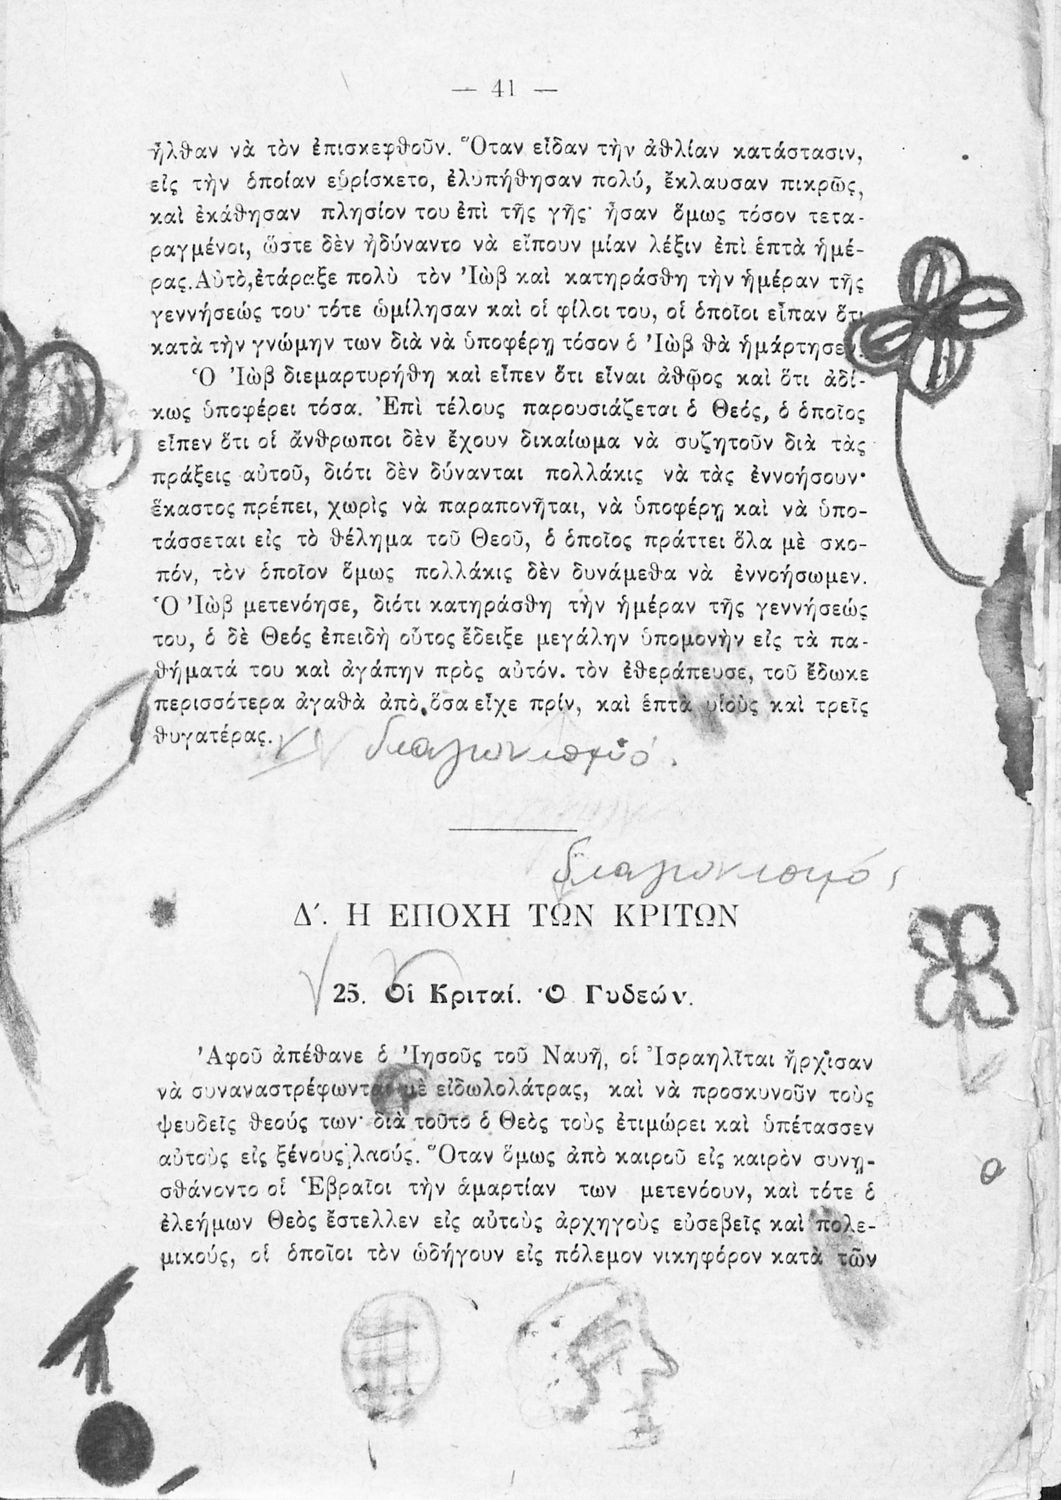 — 41 —
ἦλθαν νὰ τὸν ἐπισκεφθοῦν. Ὅταν εἶδαν τὴν ἀθλίαν κατάστασιν,
εἰς τὴν ὁποίαν εὑρίσκετο, ἐλυπήθησαν πολύ, ἔκλαυσαν πικρῶς,
καὶ ἐκάθησαν πλησίον του ἐπὶ τῆς γῆς· ἦσαν ὅμως τόσον τετα-
ραγμένοι, ὥστε δὲν ἠδύναντο νὰ εἴπουν μίαν λέξιν ἐπὶ ἑπτὰ ἡμέ-
ρας. Αὐτὸ, ἐτάραξε πολὺ τὸν Ἰὼβ καὶ κατηράσθη τὴν ἡμέραν τῆς
γεννήσεώς του· τότε ὡμίλησαν καὶ οἱ φίλοι του, οἱ ὁποῖοι εἶπαν ὅτι
κατὰ τὴν γνώμην των διὰ νὰ ὑποφέρῃ τόσον ὁ Ἰὼβ θὰ ἡμάρτησεν.
Ὁ Ἰὼβ διεμαρτυρήθη καὶ εἶπεν ὅτι εἶναι ἀθῷος καὶ ὅτι ἀδί-
κως ὑποφέρει τόσα. Ἐπὶ τέλους παρουσιάζεται ὁ Θεός, ὁ ὁποῖος
εἶπεν ὅτι οἱ ἄνθρωποι δὲν ἔχουν δικαίωμα νὰ συζητοῦν διὰ τὰς
πράξεις αὐτοῦ, διότι δὲν δύνανται πολλάκις νὰ τὰς ἐννοήσουν·
ἕκαστος πρέπει, χωρὶς νὰ παραπονῆται, νὰ ὑποφέρῃ καὶ νὰ ὑπο-
τάσσεται εἰς τὸ θέλημα τοῦ Θεοῦ, ὁ ὁποῖος πράττει ὅλα μὲ σκο-
πόν, τὸν ὁποῖον ὅμως πολλάκις δὲν δυνάμεθα νὰ ἐννοήσωμεν.
Ὁ Ἰὼβ μετενόησε, διότι κατηράσθη τὴν ἡμέραν τῆς γεννήσεώς
του, ὁ δὲ Θεός ἐπειδὴ οὗτος ἔδειξε μεγάλην ὑπομονὴν εἰς τὰ πα-
θήματά του καὶ ἀγάπην πρὸς αὐτόν. τὸν ἐθεράπευσε, τοῦ ἔδωκε
περισσότερα ἀγαθὰ ἀπὸ ὅσα εἶχε πρίν, καὶ ἑπτὰ υἱοὺς καὶ τρεῖς
θυγατέρας.
διαγωνισμό.
διαγωνισμός
Δ΄. Η ΕΠΟΧΗ ΤΩΝ ΚΡΙΤΩΝ
25. Οἱ Κριταί. Ὁ Γυδεών.
Ἀφοῦ ἀπέθανε ὁ Ἰησοῦς τοῦ Ναυῆ, οἱ Ἰσραηλῖται ἤρχισαν
νὰ συναναστρέφωνται μὲ εἰδωλολάτρας, καὶ νὰ προσκυνοῦν τοὺς
ψευδεῖς θεούς των· διὰ τοῦτο ὁ Θεὸς τοὺς ἐτιμώρει καὶ ὑπέτασσεν
αὐτοὺς εἰς ξένους λαούς. Ὅταν ὅμως ἀπὸ καιροῦ εἰς καιρὸν συνῃ-
σθάνοντο οἱ Ἑβραῖοι τὴν ἁμαρτίαν των μετενόουν, καὶ τότε ὁ
ἐλεήμων Θεὸς ἔστελλεν εἰς αὐτοὺς ἀρχηγοὺς εὐσεβεῖς καὶ πολε-
μικούς, οἱ ὁποῖοι τὸν ὡδήγουν εἰς πόλεμον νικηφόρον κατὰ τῶν